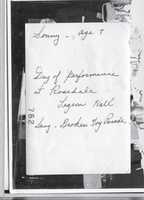 Sonny - Age 8
Day of performance
at Rosedale
Legion Hall
Sang - Broken Toy Parade
762